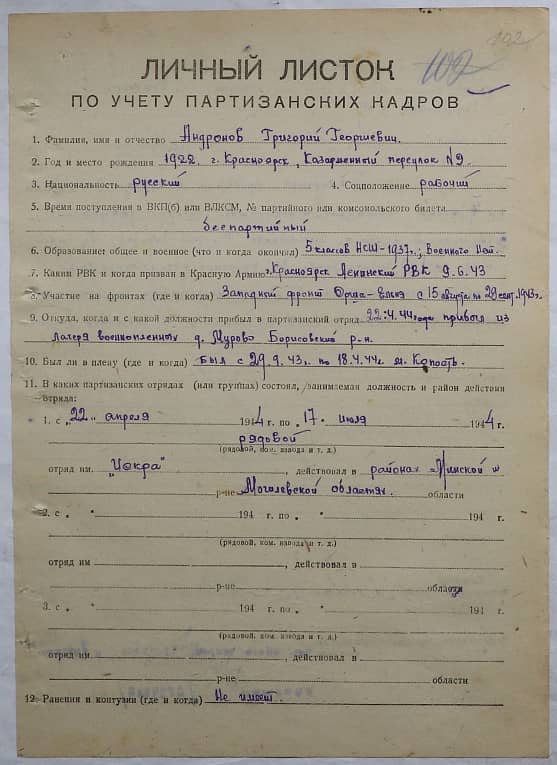 102
102
ЛИЧНЫЙ ЛИСТОК
ПО УЧЕТУ ПАРТИЗАНСКИХ КАДРОВ
1. Фамилия, имя и отчество Андронов Григорий Георгиевич.
2. Год и место рождения 1922. г. Красноярск, Казарменный переулок №9.
3. Национальность русский 4. Соцположение рабочий
5. Время поступления в ВКП(б) или ВЛКСМ, № партийного или комсомольского билета
беспартийный
6. Образование: общее и военное (что и когда окончил) 5 классов НСШ-1937г.; Военного Нет.
7. Каким РВК и когда призван в Красную Армию г. Красноярск Ленинский РВК 9.6.43
8. Участие на фронтах (где и когда) Западный фронт Орша-Ельня с 15 августа по 29 сент. 1943г.
9. Откуда, когда и с какой должности прибыл в партизанский отряд 22.4.44 года прибыл из
лагеря военнопленных д. Мурово Борисовский р-н.
10. Был ли в плену (где и когда) Был с 29.9.43г. по 18.4.44г. м.
11. В каких партизанских отрядах (или группах) состоял, занимаемая должность и район действия
отряда:
1. с „22" апреля 1944 г. по „17" июля 1944 г.
рядовой
(рядовой, ком. взвода и т. д.)
отряд им. "Искра", действовал в районах Минской и
р-не Могилевской областях. области
2. с „ " 194 г. по „ " 194 г.
(рядовой, ком. взвода и т. д.)
отряд им , действовал в
р-не области
3. с „ " 194 г. по „ " 194 г.
(рядовой, ком. взвода и т. д.)
отряд им , действовал в
р-не области
12. Ранения и контузии (где и когда) Не имеет.